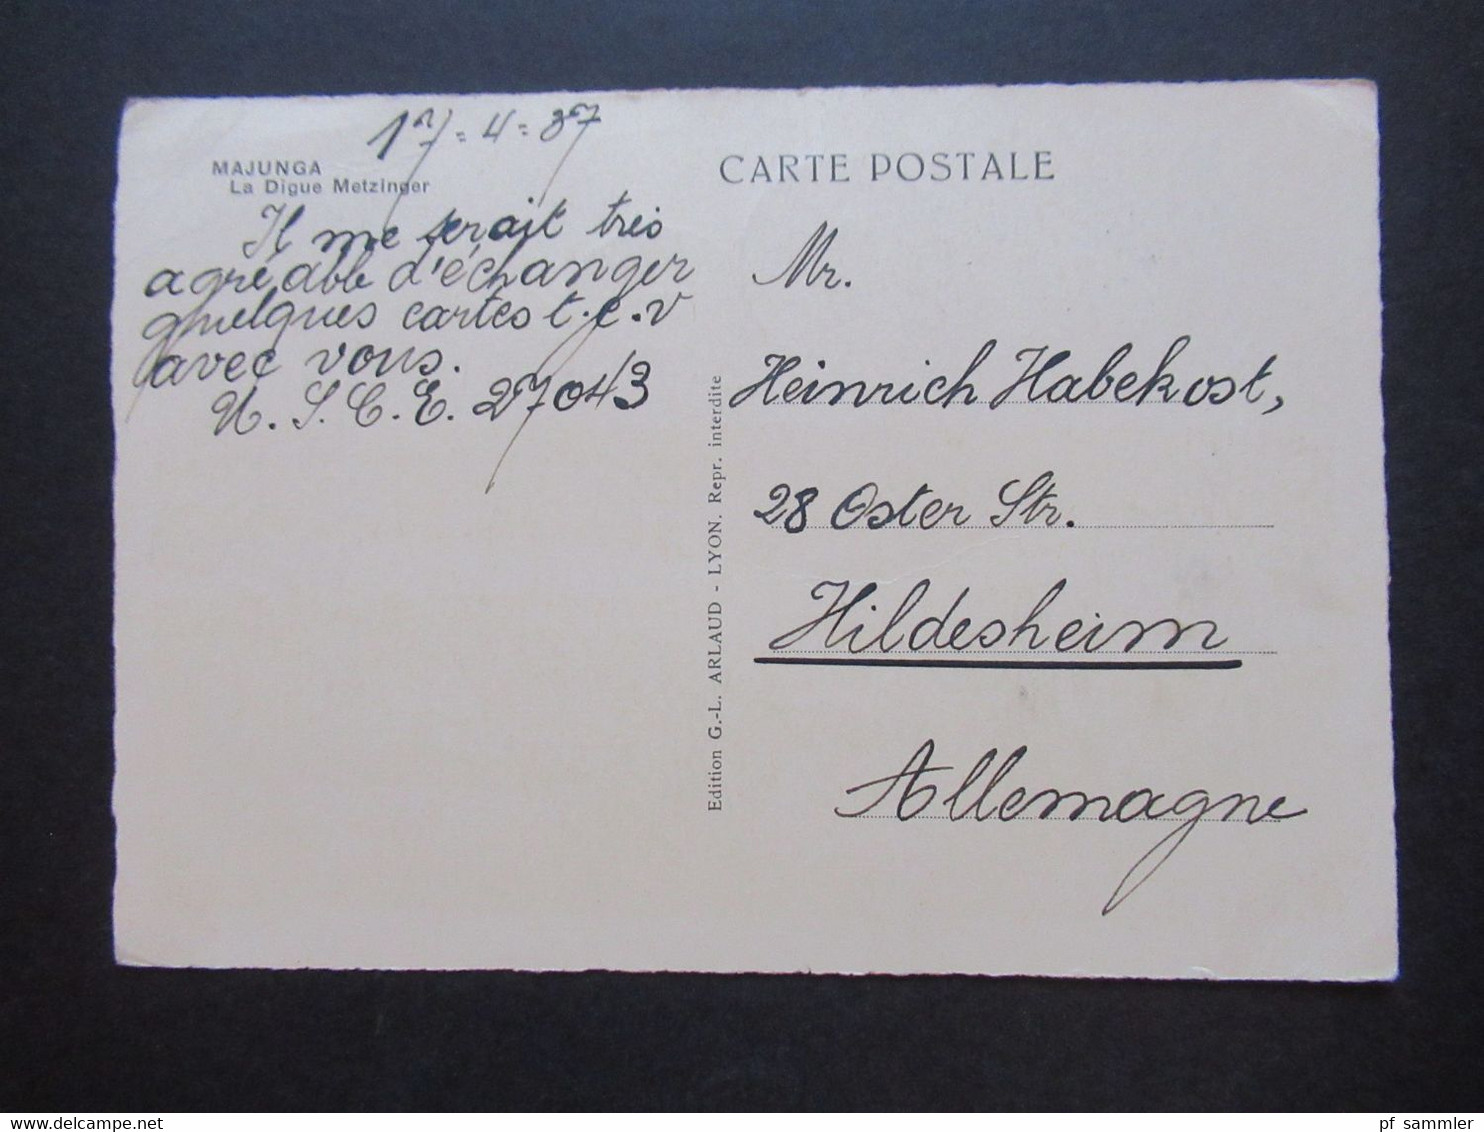 17=4=37
MAJUNGA
La Digue Metzinger
Il me serait très
agréable d'échanger
quelques cartes t.c.v
avec vous.
U.S.C.E. 27043
CARTE POSTALE
Mr.
Heinrich Habekost,
28 Oster Str.
Hildesheim
Allemagne
Edition G.-L. ARLAUD - LYON. Repr. interdite
www.delcampe.net
pf_sammler